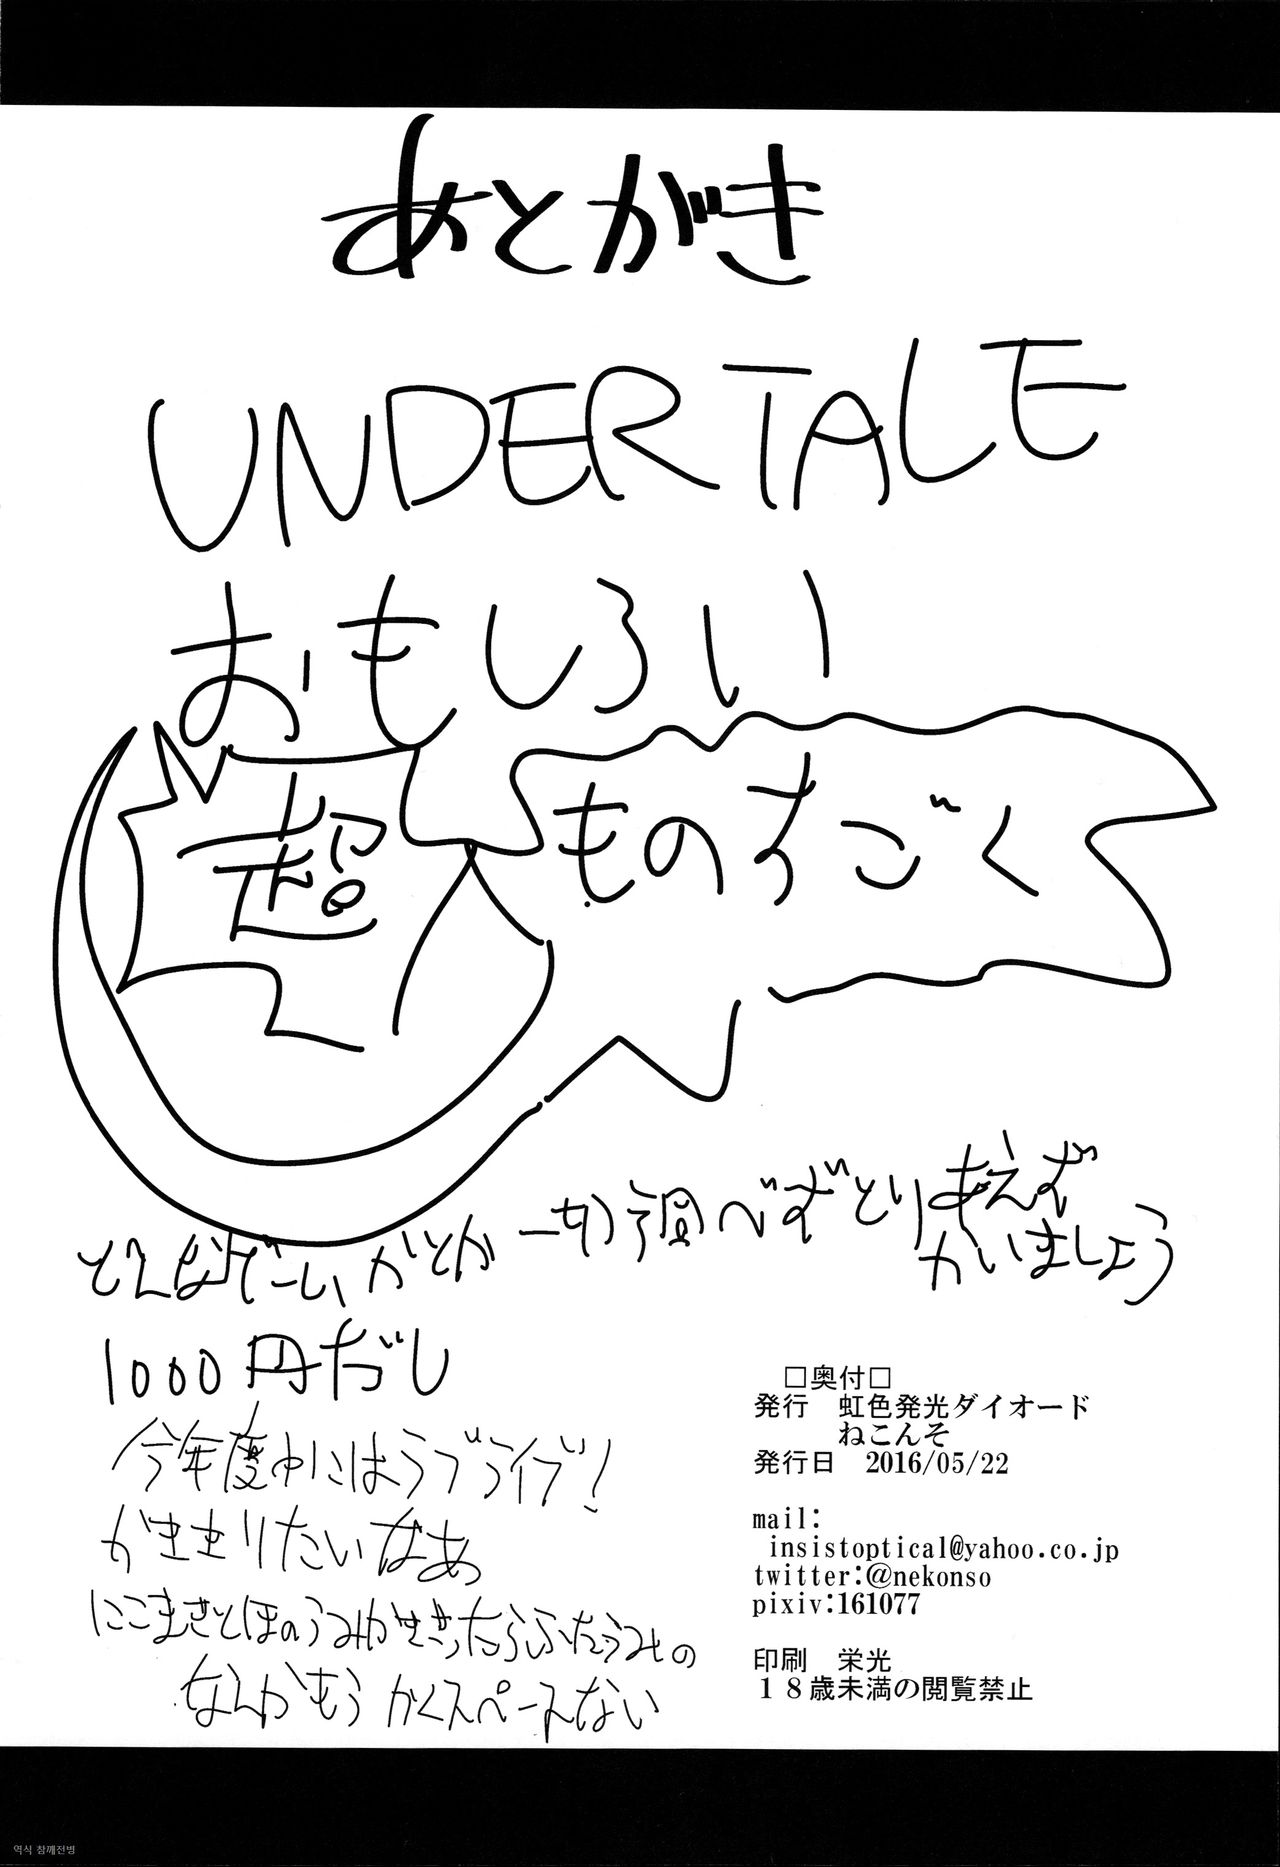 あとがき
UNDERTALE
おもしろい
超 ものすごく
どんなゲームかとか一切調べずとりあえず
かいましょう
1000円だし
今年度中にはラブライブ!
かききりたいなあ
にこまきとほのうみかききったらふたうみの
なんかもうかくスペースない
□奥付□
発行 虹色発光ダイオード
ねこんそ
発行日 2016/05/22
mail:
insistoptical@yahoo.co.jp
twitter:@nekonso
pixiv:161077
印刷 栄光
18歳未満の閲覧禁止
역식 참깨전병